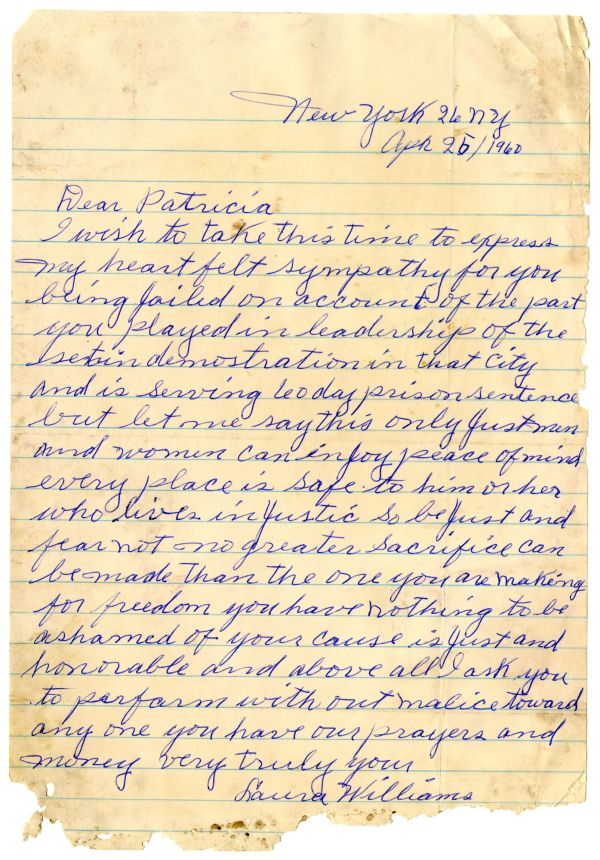 New York 26 NY
Apr 25/1960
Dear Patricia
I wish to take this time to express
my heart felt sympathy for you
being Jailed on account of the part
you played in leadership of the
setin demostration in that City
and is serving 60 day prison sentence
but let me say this only Just men
and women can injoy peace of mind
every place is safe to him or her
who lives in Justic so be Just and
fear not no greater sacrifice can
be made than the one you are making
for freedom you have nothing to be
ashamed of your cause is Just and
honorable and above all I ask you
to perform with out malice toward
any one you have our prayers and
money very truly your
Laura Williams